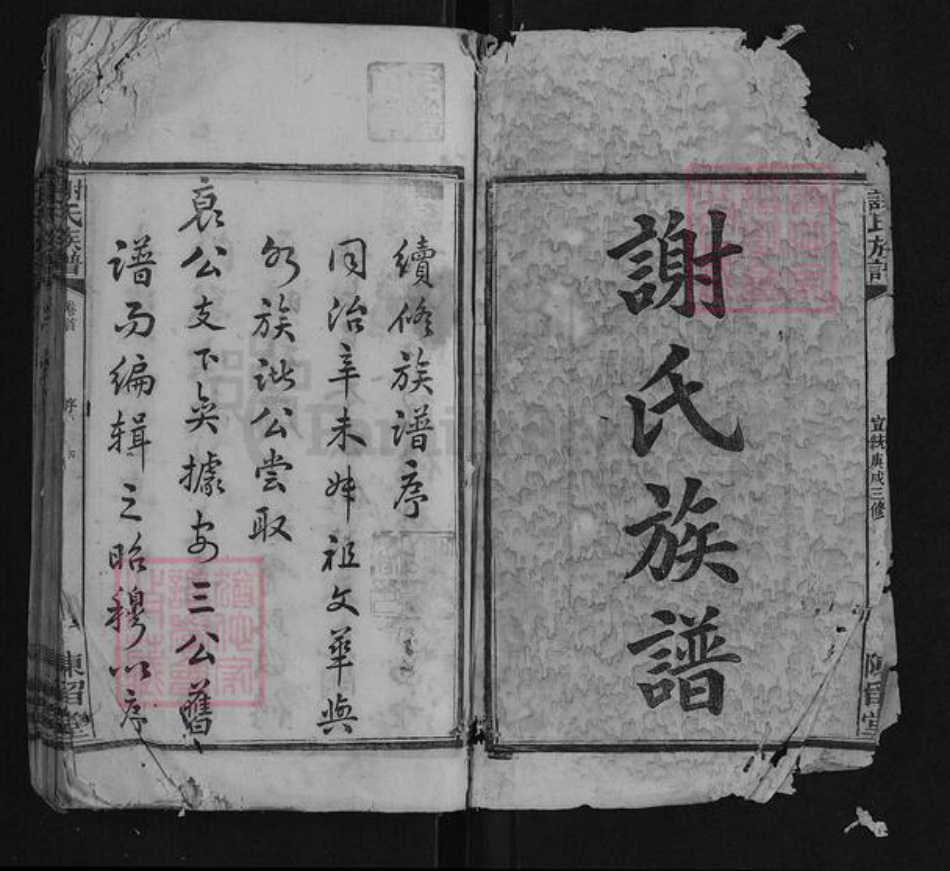 謝氏族譜
宣統庚戌三修
陳留堂
續修族譜序
同治辛未姊祖文華與
族諸公嘗取
哀公支下與據安三公舊
譜而編輯之昭穆以序
謝氏族譜
卷首
序
陳留堂